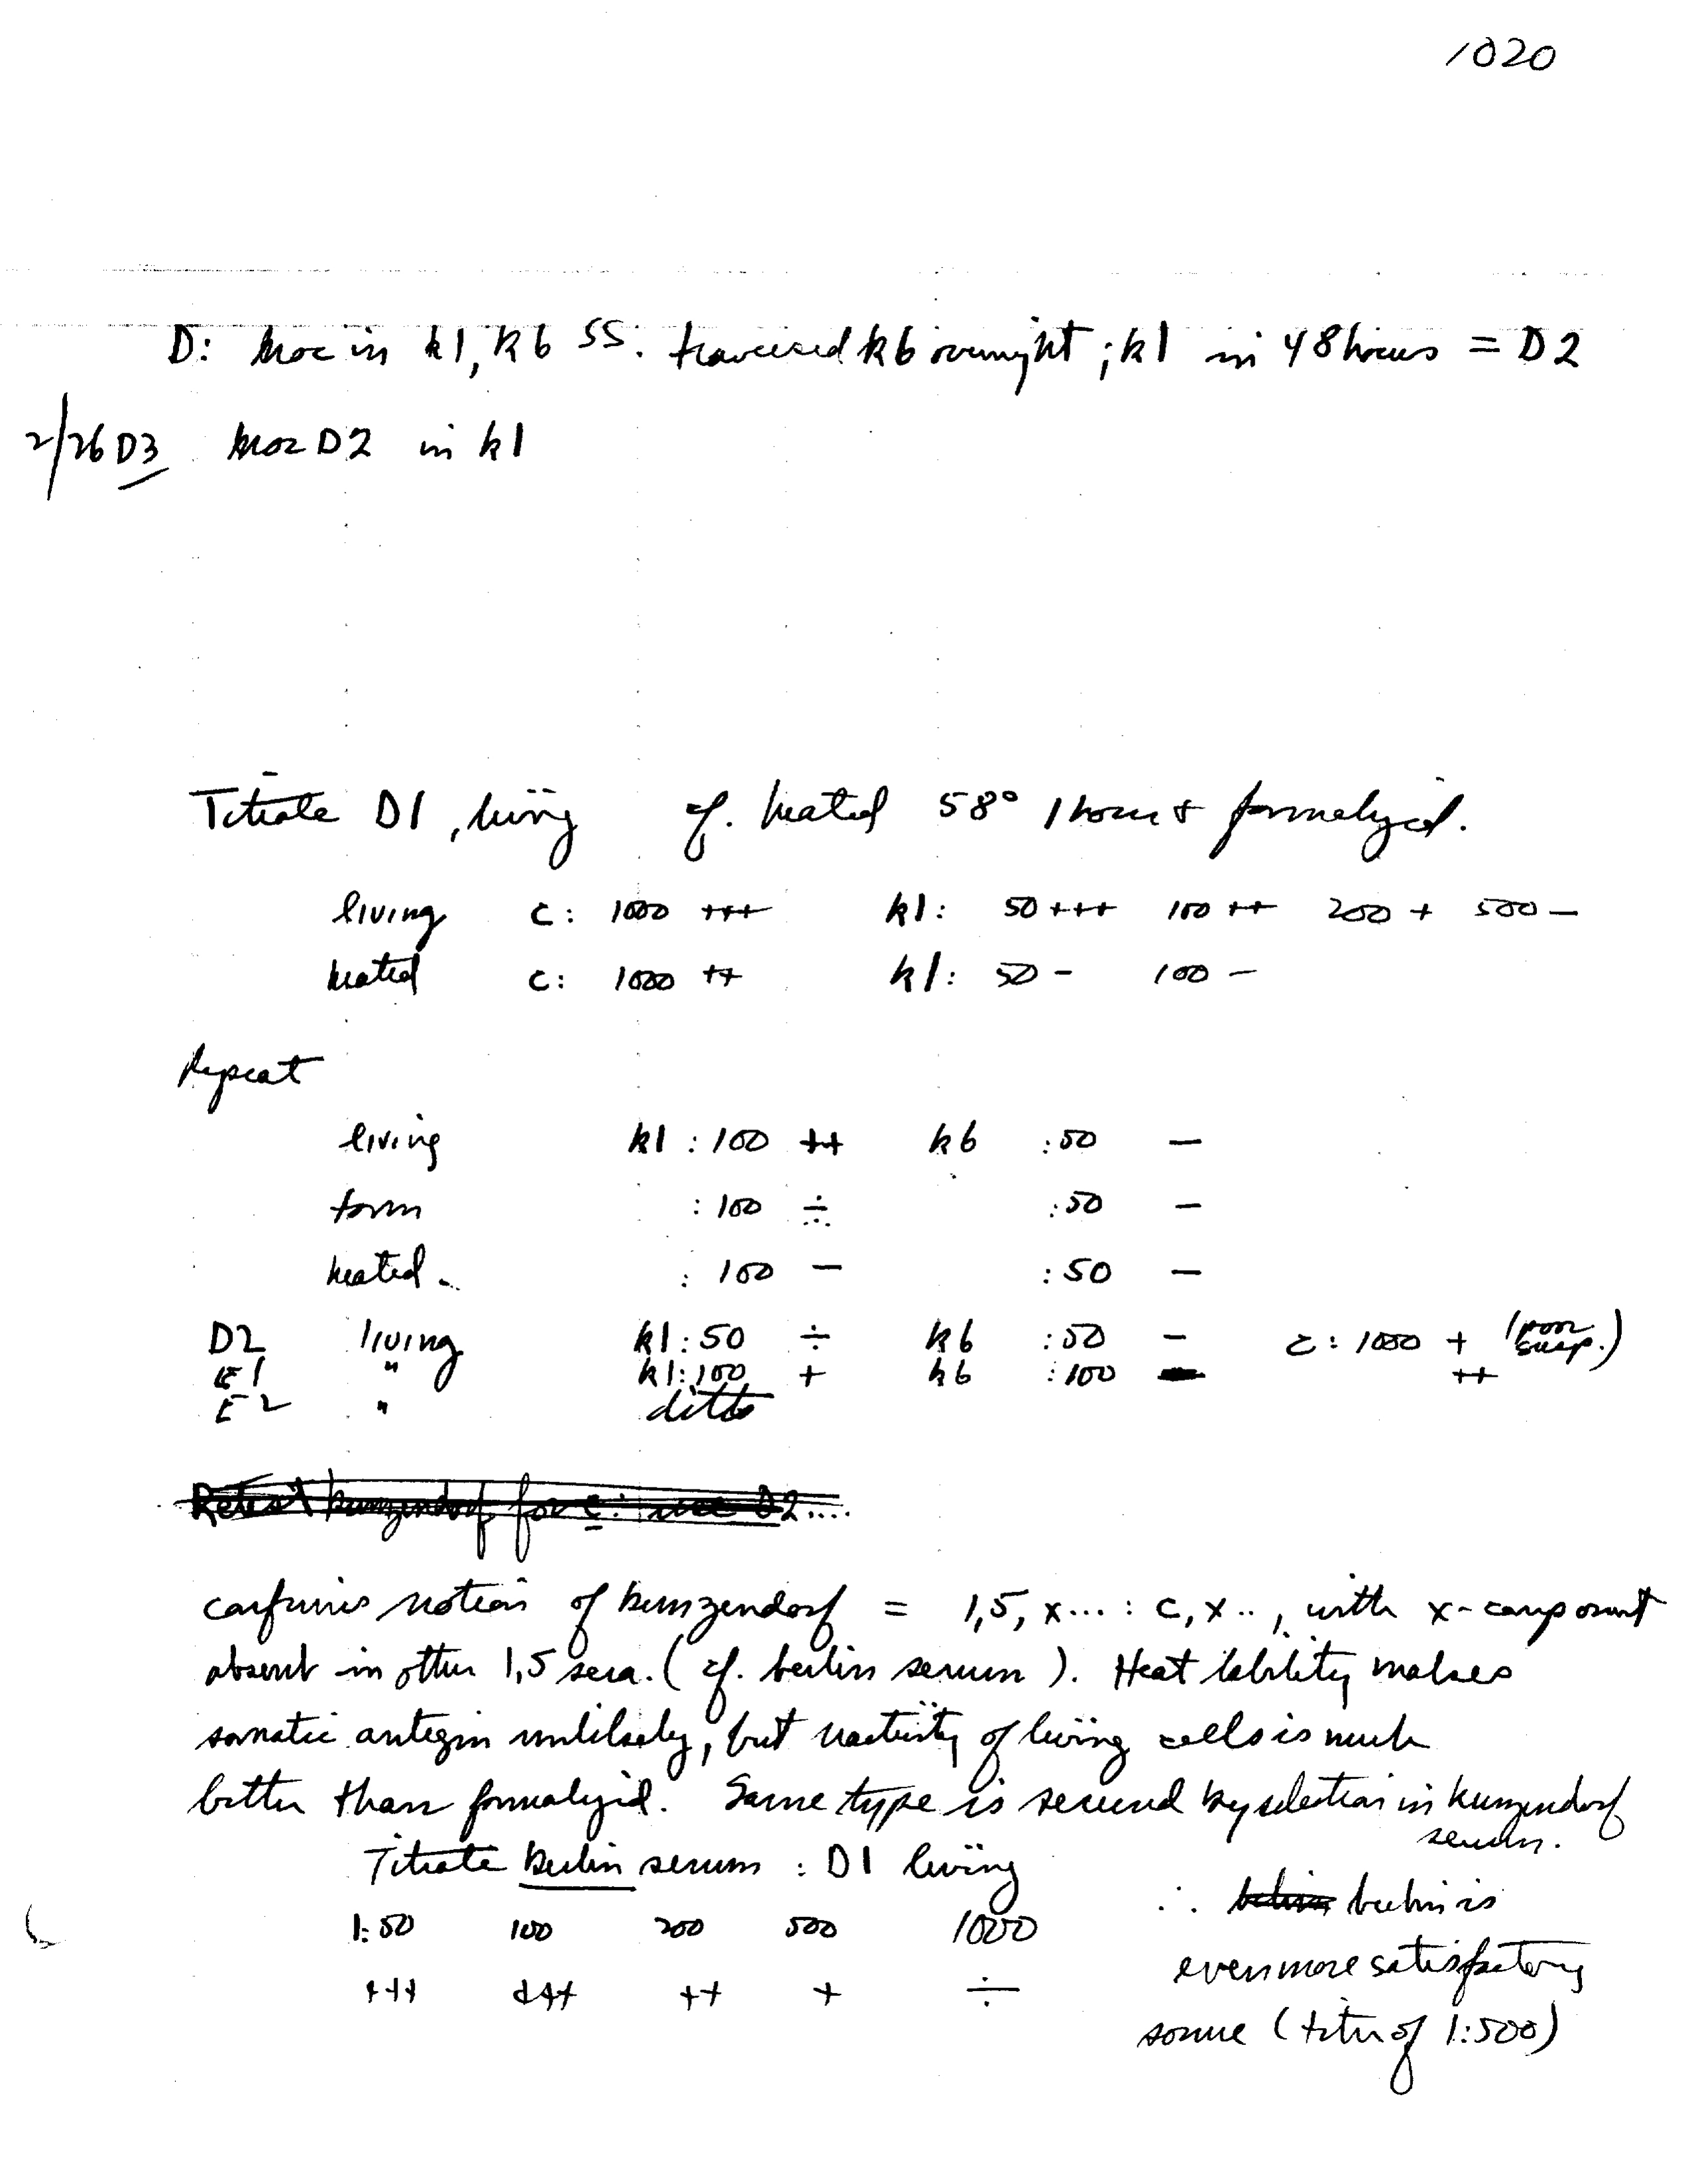 1020
D: Inoc in k1, k6 SS. traversed k6 overnight; k1 in 48 hours = D2
2/26 D3 Inoc D2 in k1
Titrate D1, living cf. heated 58° 1 hour & formalyzed.
living c: 1000 +++ k1: 50 +++ 100 ++ 200 + 500 –
heated c: 1000 ++ k1: 50 - 100 –
Repeat
living k1 : 100 ++ k6 :50 –
form : 100 ÷ :50 –
heated. : 100 – :50 –
D2 living k1:50 ÷ k6 :50 – c: 1000 + (poor susp.)
E1 " k1:100 + k6 :100 – ++
E2 " ditto
Retest kunzendorf for c: use D2....
confirms notion of kunzendorf = 1,5, x... : c, x.., with x-component
absent in other 1,5 sera. (cf. berlin serum). Heat lability makes
somatic antigen unlikely, but reactivity of living cells is much
better than formalyzed. Same type is secured by selection in kunzendorf
serum.
Titrate berlin serum : D1 living
1:50 100 200 500 1000
+++ +++ ++ + ÷
∴ berlin is
even more satisfactory
source (titer of 1:500)